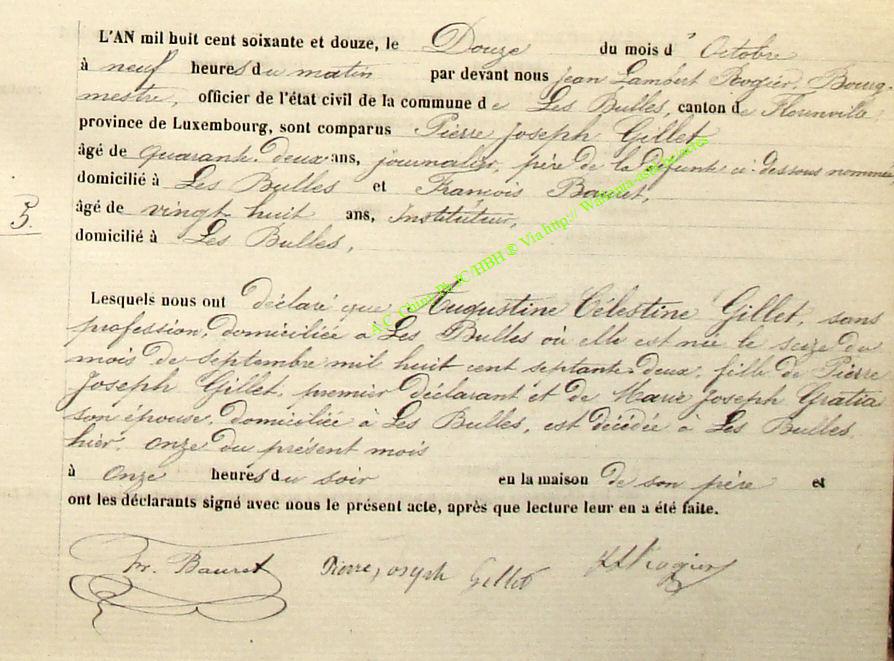 L'AN mil huit cent soixante et douze, le Douze du mois d' Octobre
à neuf heures du matin par devant nous Jean Lambert Rogier, Bourg-
mestre, officier de l'état civil de la commune de Les Bulles, canton de Florenville,
province de Luxembourg, sont comparus Pierre Joseph Gillet
âgé de quarante-deux ans, journalier, père de la défunte ci-dessous nommée
domicilié à Les Bulles et François Bauret,
5.
âgé de vingt huit ans, Instituteur,
domicilié à Les Bulles,
A.C. Chiny Ph JC/HBH © Via http://
Lesquels nous ont déclaré que Augustine Célestine Gillet, sans
profession, domiciliée à Les Bulles où elle est née le seize du
mois de septembre mil huit cent septante-deux, fille de Pierre
Joseph Gillet, premier déclarant et de Marie Joseph Gratia
son épouse, domiciliée à Les Bulles, est décédée à Les Bulles,
hier, onze du présent mois
à onze heures du soir en la maison de son père et
ont les déclarants signé avec nous le présent acte, après que lecture leur en a été faite.
Fr. Bauret Pierre joseph Gillet JLRogier